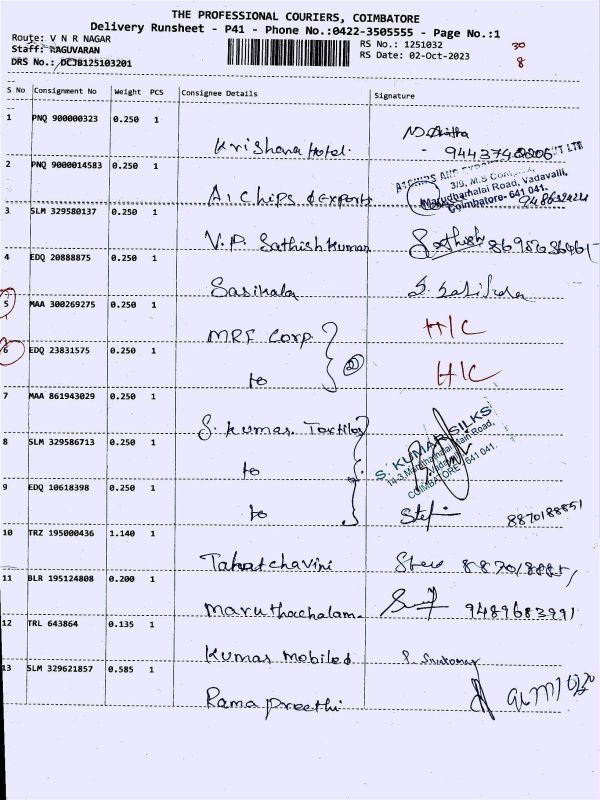 THE PROFESSIONAL COURIERS, COIMBATORE
Delivery Runsheet - P41 - Phone No.:0422-3505555 - Page No.:1
Route: V N R NAGAR RS No.: 1251032 30
Staff: RAGUVARAN RS Date: 02-Oct-2023 8
DRS No.: DCJB125103201
S No Consignment No Weight PCS Consignee Details Signature
1 PNQ 900000323 0.250 1
Krishana Hotel.
2 PNQ 9000014583 0.250 1
A1 Chips & Exports
3/9, M.S
Marudhamalai Road, Vadavalli,
Coimbatore- 641 041.
3 SLM 329580137 0.250 1
V.P. Sathishkumar Sathish
4 EDQ 20888875 0.250 1
Sasikala
5 MAA 300269275 0.250 1
MRF Corp H/C
6 EDQ 23831575 0.250 1
to 2 H/C
7 MAA 861943029 0.250 1
S. Kumar Textiles
S. KUMAR SILKS
Main Road,
COIMBATORE 641 041.
8 SLM 329586713 0.250 1
to
9 EDQ 10618398 0.250 1
to 8870188851
10 TRZ 195000436 1.140 1
11 BLR 195124808 0.200 1
Maruthachalam 9489683991
12 TRL 643864 0.135 1
Kumar Mobiles
13 SLM 329621857 0.585 1
Rama Preethi